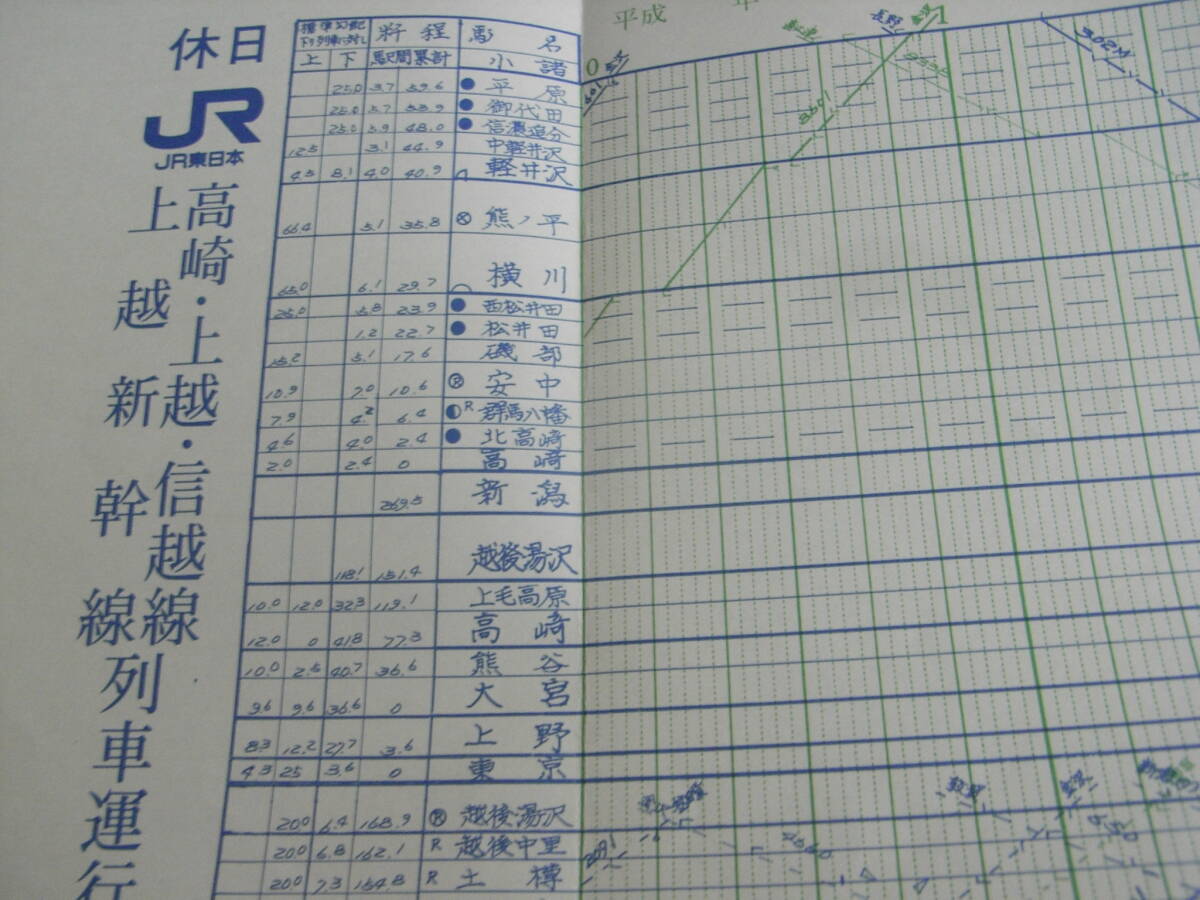 休日
JR
JR東日本
高崎・上越・信越線
上越新幹線
列車運行
平成 年
標準勾配
料程 駅名
上 下 駅間 累計 小諸
25.0 3.7 59.6 平原
25.0 5.7 55.9 御代田
25.0 5.9 48.0 信濃追分
12.5 3.1 44.9 中軽井沢
4.5 8.1 4.0 40.9 軽井沢
66.4 5.1 35.8 熊ノ平
65.0 6.1 29.7 横川
25.0 5.8 23.9 西松井田
1.2 22.7 松井田
15.2 5.1 17.6 磯部
10.9 7.0 10.6 Ⓡ 安中
7.9 4.2 6.4 R 群馬八幡
4.6 4.0 2.4 北高崎
2.0 2.4 0 高崎
269.5 新潟
118.1 151.4 越後湯沢
10.0 12.0 32.3 119.1 上毛高原
12.0 0 41.8 77.3 高崎
10.0 2.5 40.7 36.6 熊谷
9.6 9.6 36.6 0 大宮
8.3 12.2 27.7 3.6 上野
4.3 25 3.6 0 東京
20.0 6.4 168.9 Ⓡ 越後湯沢
20.0 6.8 162.1 R 越後中里
20.0 7.3 154.8 R 土樽
0
長野
金沢
302M
8601